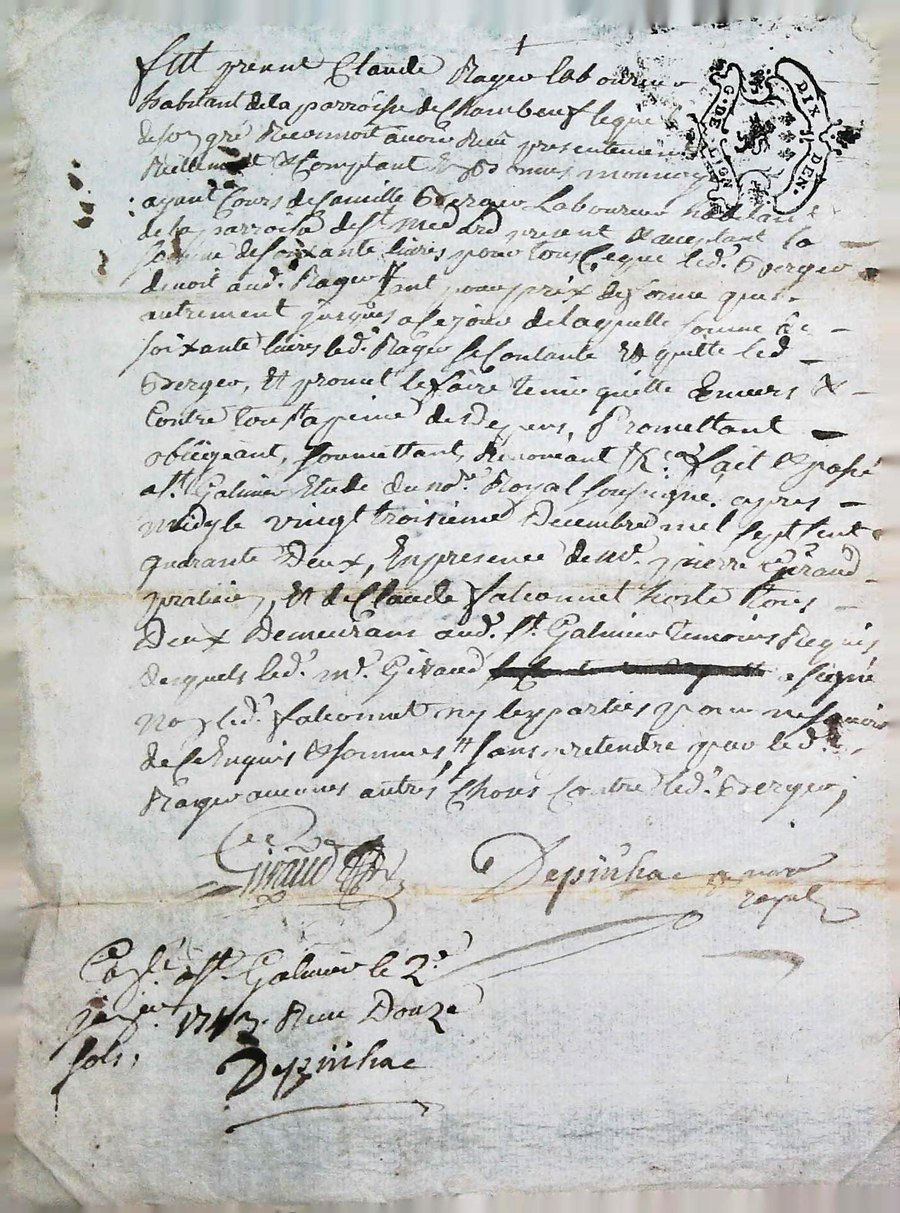 Fut present Claude Rageo laboureur
habitant de la parroisse de Chambeuf lequel
de son gré Reconnoit avoir Reçu presentement
Reellement & Comptant En Especes monnoye
ayant Cours de famille Berger Laboureur habitant
de la parroisse de St. Medard present & acceptant la
somme de soixante livres pour tout Ce que led. Berger
devoit aud. Rageo soit pour prix de ferme que
autrement jusques a Ce jour de laquelle somme de
soixante livres led. Rageo se Contante Et quitte led
Berger, Et promet le faire tenir quitte Envers &
Contre tous a peine de Depens, Promettant
obligeant, soumettant, Renonceant &c. fait & passé
a St. Galmier Etude du nore. Royal soussigné apres
midy le vingt troisieme Decembre mil sept cent
quarante Deux, En presence de Me. pierre Giraud
praticien, Et de Claude falconnet hoste tous
Deux Demeurans aud. St. Galmier temoins Requis
desquels led. me. Giraud a signé
non led. falconnet ny les parties pour ne sçavoir
de Ce Enquis & sommés, sans pretendre par led.
Rageo aucunes autres Choses Contre led. Berger,
Giraud
Depinhac
Coslé a St. Galmier le 2e
janvier 1743. Reçu Douze
sols,
Depinhac
G. DE LION
DIX DEN.